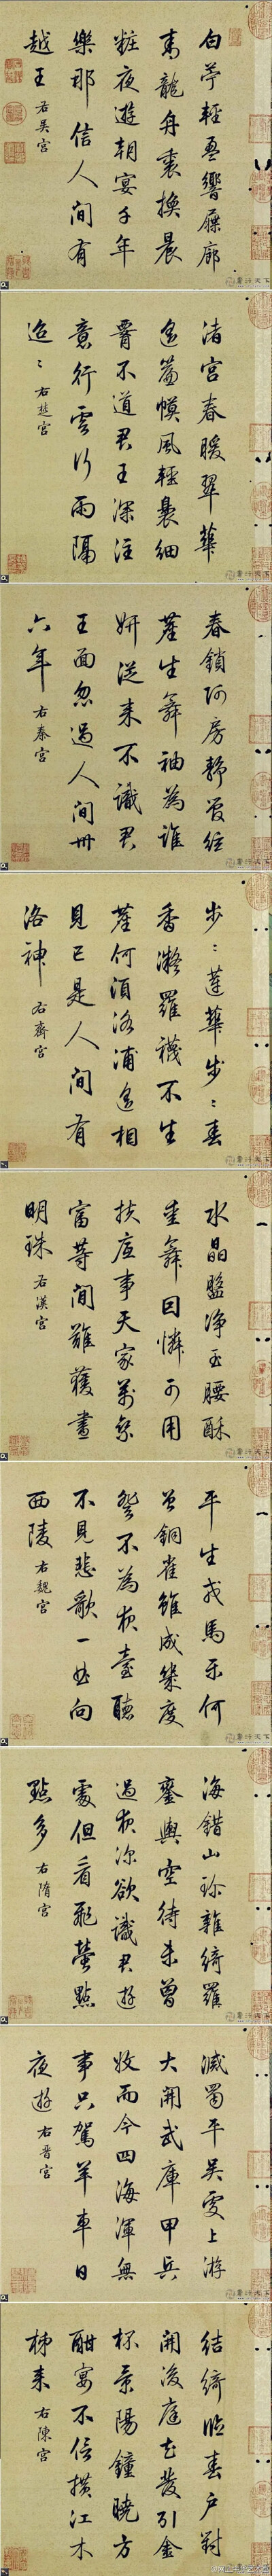 白苧輕盈響屧廊
青龍舟裏換晨
粧夜遊朝宴千年
樂那信人間有
越王 右吳宮
渚宮春暖翠華
遙簷幙風輕裊細
腰不道君王深注
意行雲行雨隔
迢〻 右楚宮
春鎖阿房靜管絃
塵生舞袖為誰
妍從來不識君
王面忽過人間卅
六年 右秦宮
步〻蓮華步〻春
香凝羅襪不生
塵何須洛浦遙相
見已是人間有
洛神 右齊宮
水晶盤净玉腰酥
垂舞回憐可用
扶底事天家萬乘
富等間難獲晝
明珠 右漢宮
平生戎馬樂何
曾銅雀雖成幾度
登不為夜臺聽
不見悲歌一曲向
西陵 右魏宮
海錯山珍雜綺羅
鑾輿空待未曾
過夜深欲識君遊
處但看飛螢點
點多 右隋宮
滅蜀平吳更上游
大開武庫甲兵
收而今四海渾無
事只駕羊車日
夜遊 右晉宮
結綺臨春戶對
開後庭花發引金
杯景陽鐘曉方
酣宴不信橫江木
柹來 右陳宮